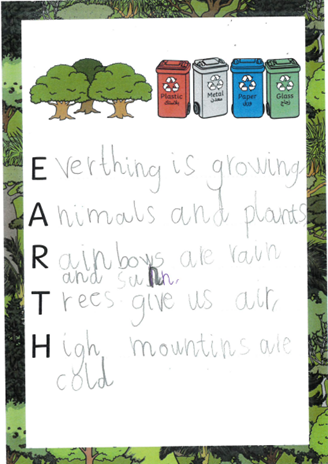 Plastic Metal Paper Glass
معدن زجاج
Everthing is growing
Animals and plants
Rainbows are rain
and
Trees give us air,
High mountins are
cold